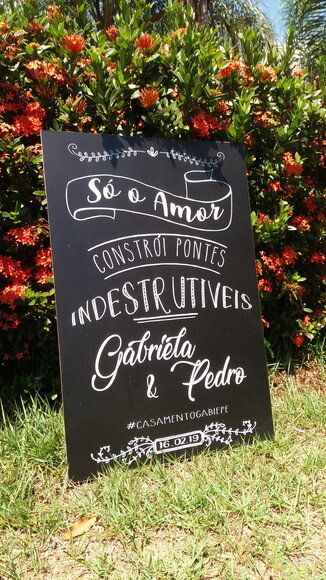 Só o Amor
CONSTRÓI PONTES
INDESTRUTIVEIS
Gabriela
& Pedro
#CASAMENTOGABIEPE
16.02.19